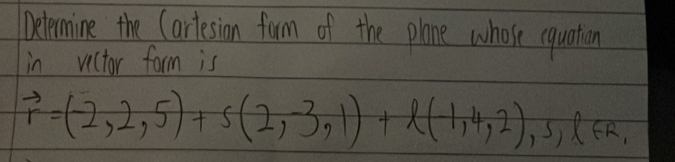 Determine the Cartesian form of the plane whose equation
in vector form is
r⃗ = (-2, 2, 5) + s(2, -3, 1) + l(-1, 4, 2), s, l ∈ R.